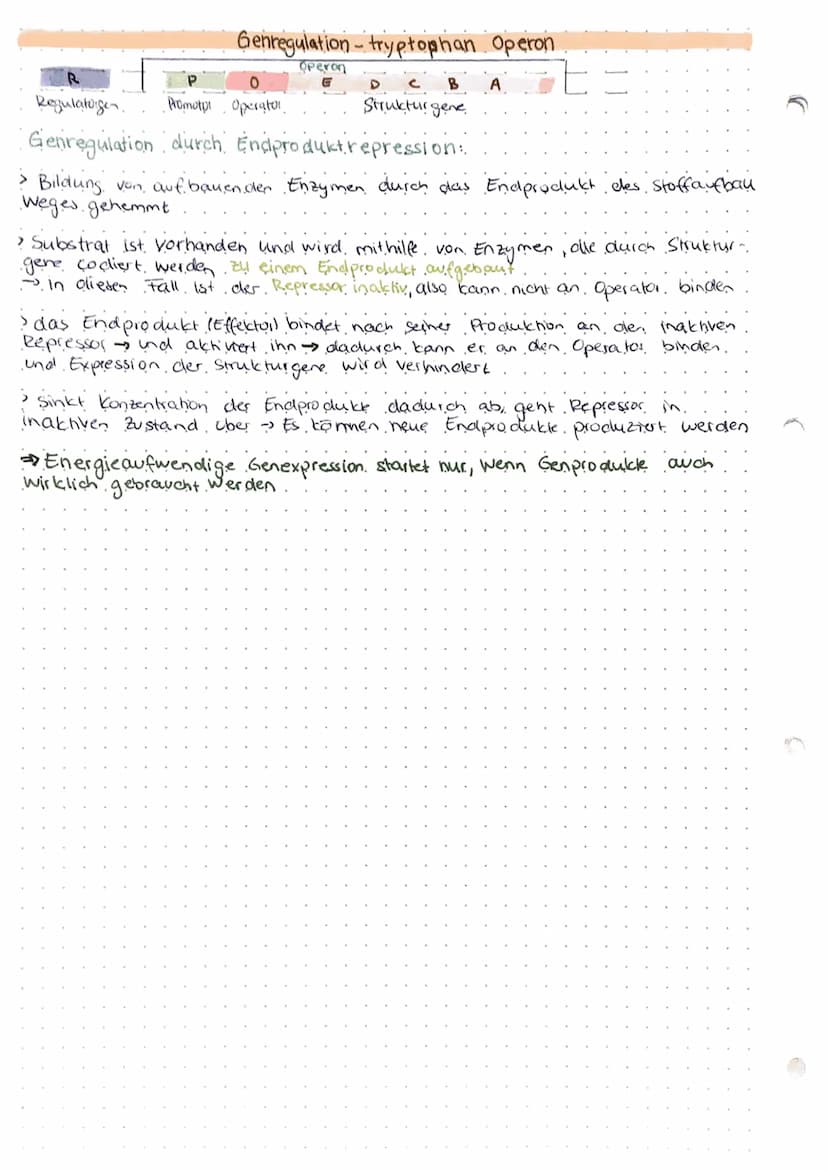 Genregulation - tryptophan Operon
Operon
R P O E D C B A
Regulatorgen Promotor Operator Strukturgene
Genregulation durch Endproduktrepression:
> Bildung von aufbauenden Enzymen durch das Endprodukt des Stoffaufbau
Weges gehemmt
> Substrat ist vorhanden und wird mithilfe von Enzymen, die durch Struktur-
gene codiert werden zu einem Endprodukt aufgebaut
→ In diesen Fall ist der Repressor inaktiv, also kann nicht an Operator binden
> das Endprodukt (Effektor) bindet nach seiner Produktion an den inaktiven
Repressor → und aktiviert ihn → dadurch kann er an den Operator binden
und Expression der Strukturgene wird verhindert
> Sinkt Konzentration der Endprodukte dadurch ab, geht Repressor in
inaktiven Zustand über → Es können neue Endprodukte produziert werden
⇒ Energieaufwendige Genexpression startet nur, wenn Genprodukte auch
wirklich gebraucht werden